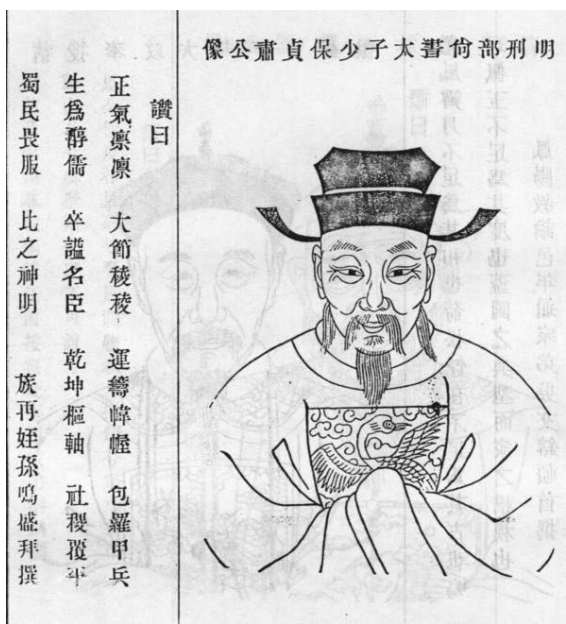 明刑部尙書太子少保貞肅公像
讚曰
正氣凛凛 大節稜稜 運籌幃幄 包羅甲兵
生爲醇儒 卒諡名臣 乾坤樞軸 社稷覆平
蜀民畏服 比之神明 族再姪孫鳴盛拜撰